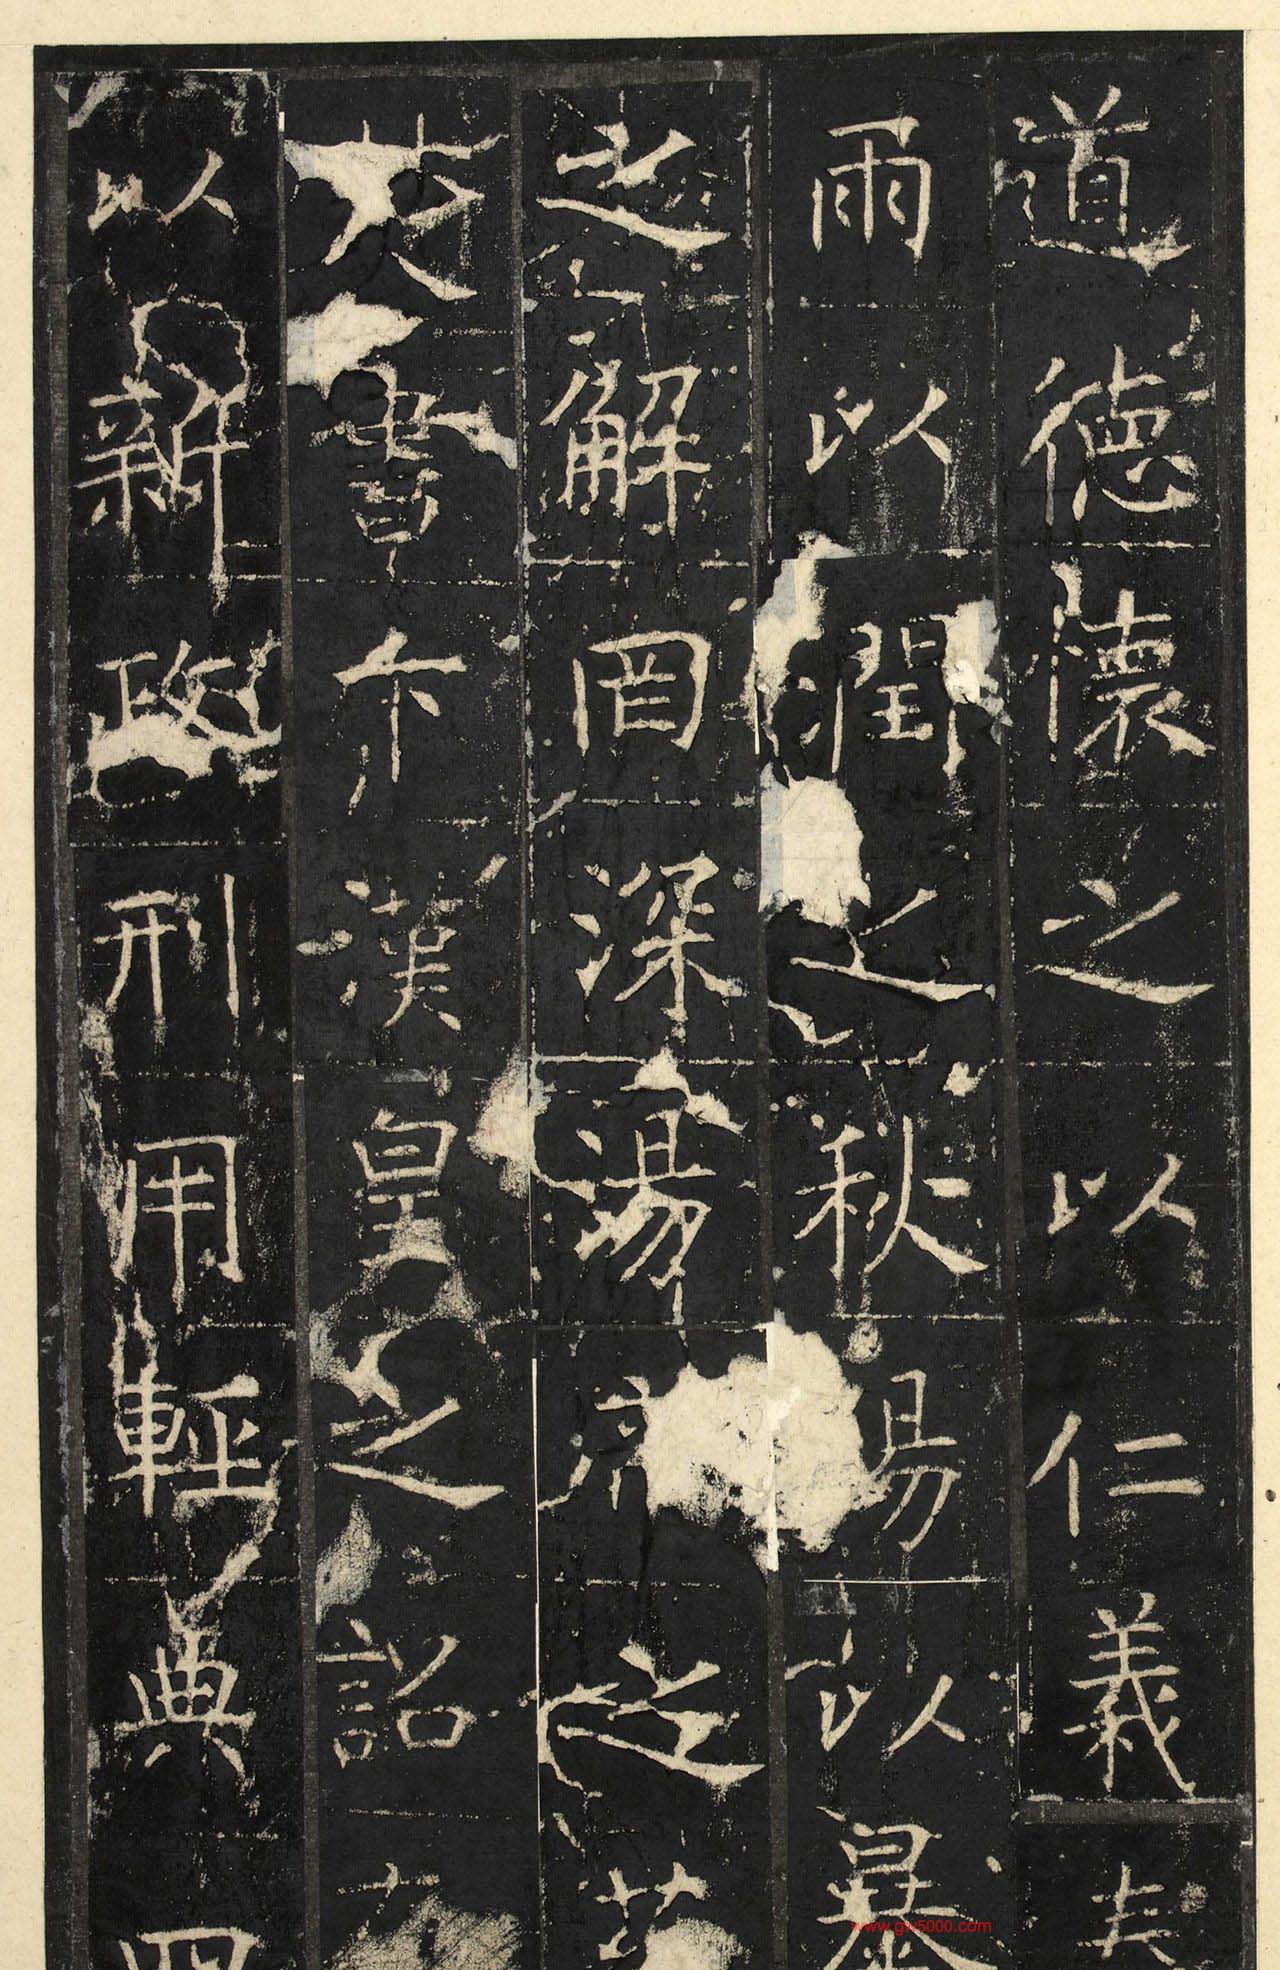 道德懷之以仁義
雨以潤之秋陽以暴
之解罔深湯之
書漢皇之詔
以新政刑用輕典四
www.gw5000.com